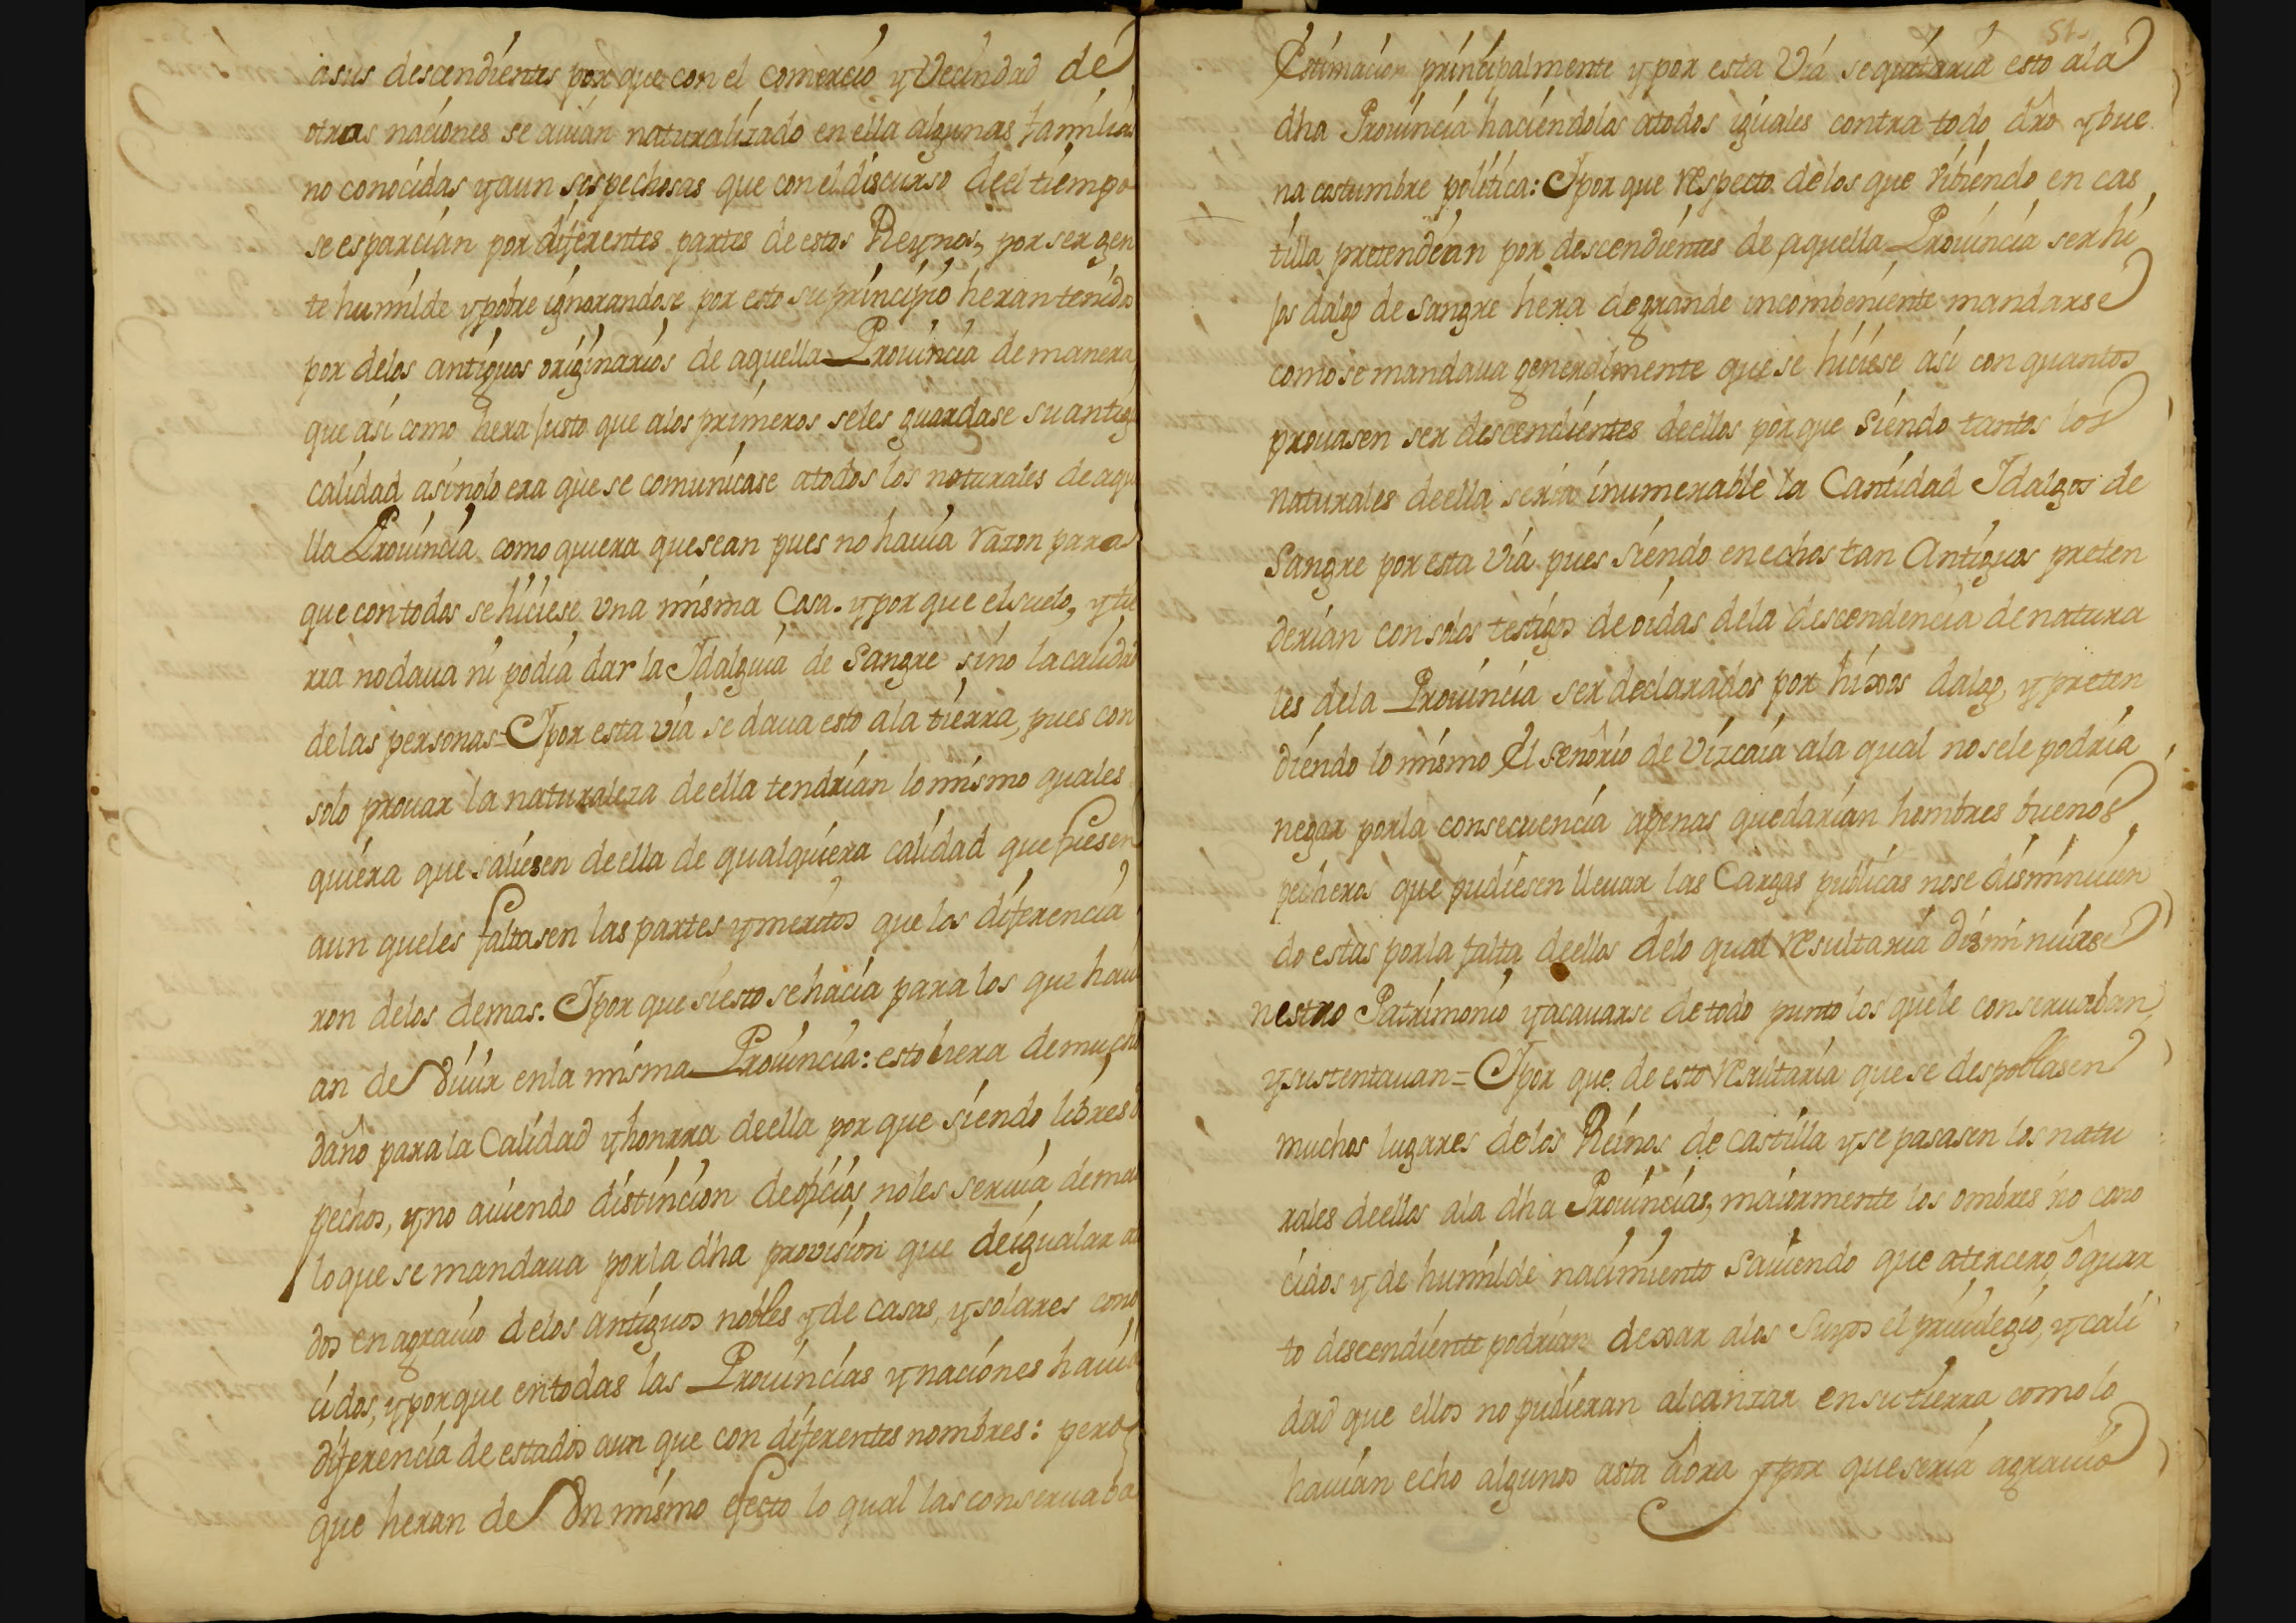 asus descendientes por que con el comercio y Vecindad de
otras naciones se auian naturalizado en ella algunas familias
no conocidas y aun sospechosas que con el discurso deel tiempo
se esparcian por diferentes partes de estos Reynos, por ser gen
te humilde y pobre ignorandose por esto su principio heran tenido
por delos antiguos originarios de aquella Prouincia de manera
que asi como hera justo que alos primeros seles guardase su antig
calidad asi nolo era que se comunicase atodos los naturales de aqu
lla Prouincia como quiera que sean pues no hauia razon para
que con todos se hiciese una misma Cosa. y por que el suelo, y tie
rra no daua ni podia dar la Idalguia de Sangre sino la calidad
delas personas= Ipor esta via se daua esto ala tierra, pues con
solo prouar la naturaleza de ella tendrian lo mismo quales
quiera que saliesen de ella de qualquiera calidad que fuesen
aun queles faltasen las partes y meritos que los diferencia
ron delos demas. Ipor que si esto se hacia para los que hau
an de Viuir enla misma Prouincia: esto hera de mucho
daño para la Calidad y honrra deella por que siendo libres d
pechos, y no auiendo distincion de oficios noles seruia de mas
lo que se mandaua por la dha prouision que de igualar a
dos en agrauio delos antiguos nobles y de casas, y solares cono
cidos, y porque en todas las Prouincias y naciones hauia
diferencia de estados aun que con diferentes nombres: pero
que heran de Vn mismo efecto lo qual las conseruaba
51
Estimacion principalmente y por esta Via se quitaria esto ala
dha Prouincia haciendolos atodos iguales contra todo dro y bue
na costumbre politica: Ipor que respecto delos que vibiendo en cas
tilla pretendean por descendientes de aquella Prouincia ser hi
jos dalgo de sangre hera de grande incombeniente mandarse
como se mandaua generalmente que se hiciese asi con quantos
prouasen ser descendientes deellos por que siendo tantos los
naturales deella seria inumerable la Cantidad Idalgos de
Sangre por esta Via pues siendo en echos tan Antiguos preten
derian con solos testigos de oidas dela descendencia de natura
les dela Prouincia ser declarados por hixos dalgo, y preten
diendo lo mismo El señorio de Vizcaia ala qual no sele podria
negar por la consecuencia apenas quedarian hombres buenos
pecheros que pudiesen lleuar las Cargas publicas no se disminuien
do estas por la falta deellos delo qual resultaria disminuirse
nestro Patrimonio y acauarse de todo punto los quele conseruaban
y sustentauan= Ipor que de esto resultaria que se despoblasen
muchos lugares delos Reinos de Castilla y se pasasen los natu
rales deellos ala dha Prouincias, maiormente los ombres no cono
cidos y de humilde nacimiento sauiendo que atercero, ô quar
to descendiente podrian dexar alos Suyos el priuilegio, y cali
dad que ellos no pudieran alcanzar en su tierra como lo
hauian echo algunos asta âora y por que seria agrauio